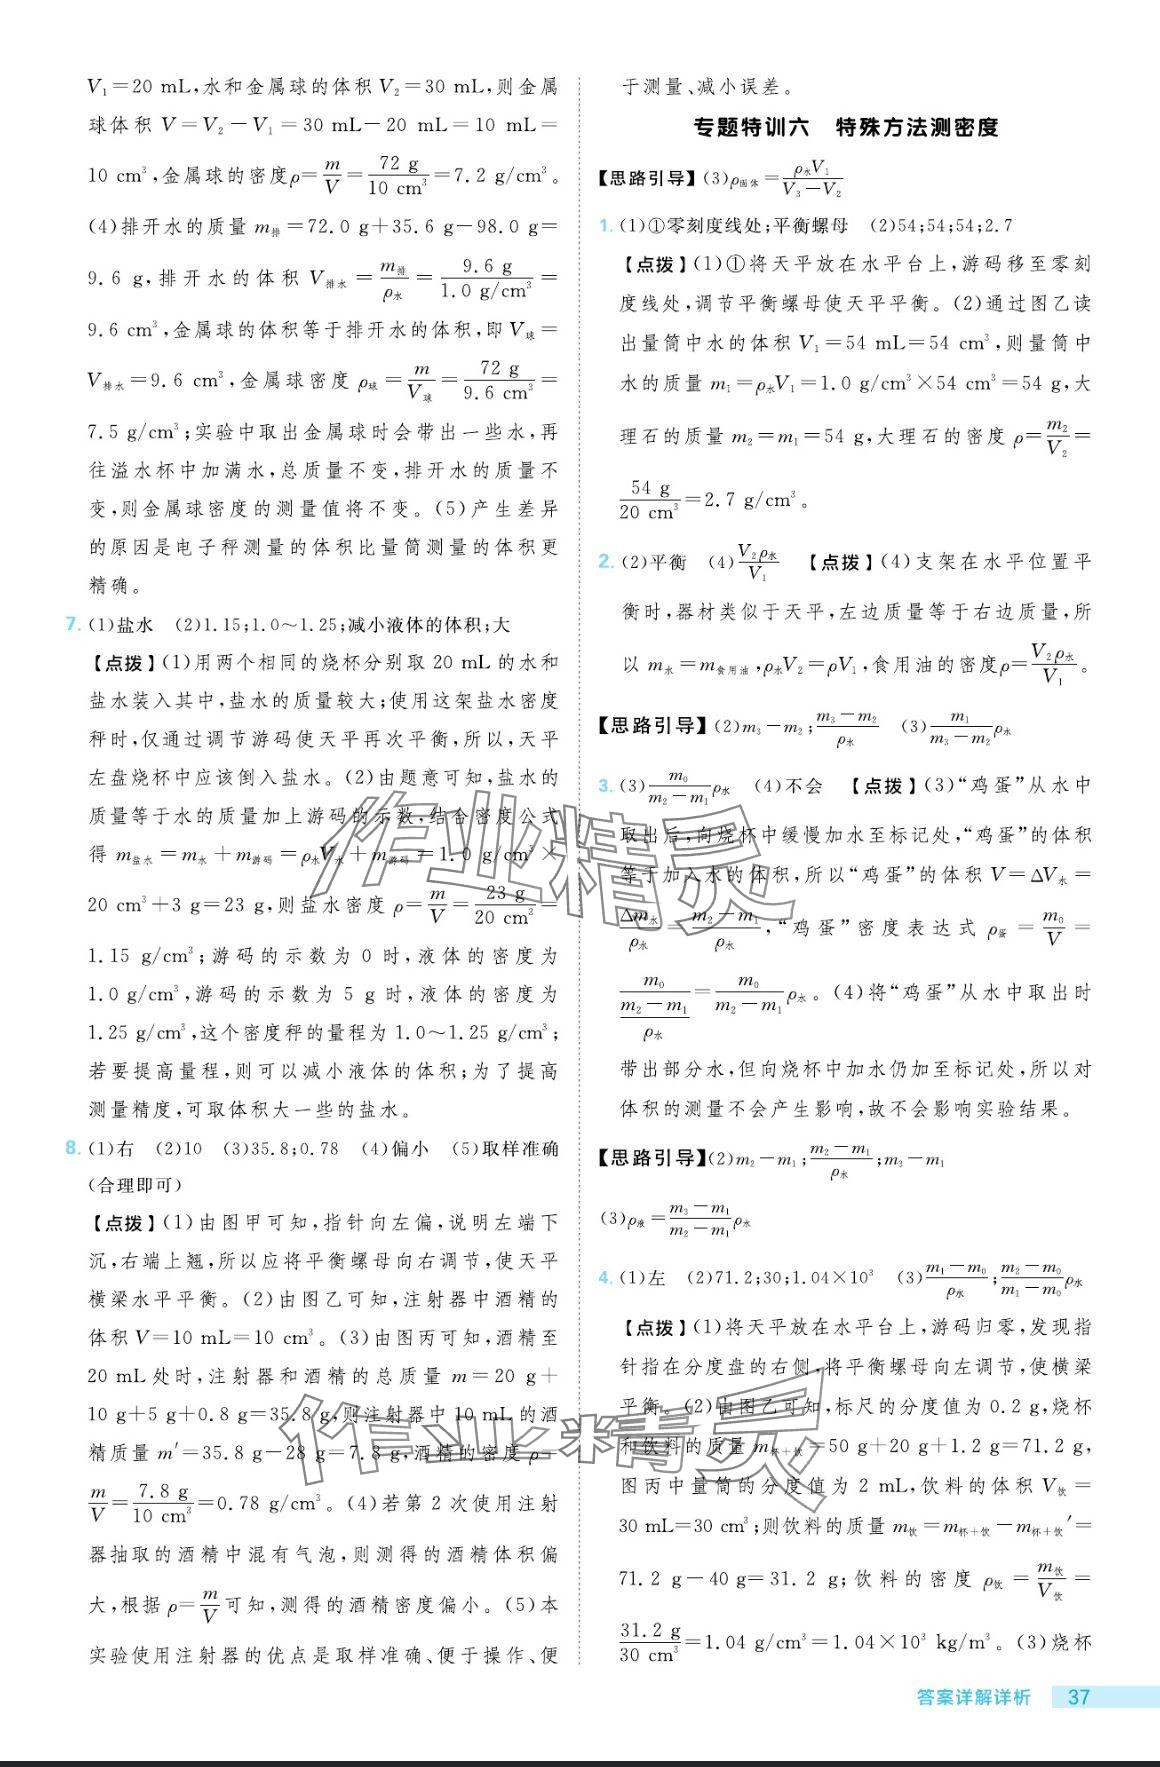 V₁=20 mL,水和金属球的体积V₂=30 mL,则金属
球体积 V=V₂-V₁=30 mL-20 mL=10 mL=
10 cm³,金属球的密度ρ=m/V=72 g/10 cm³=7.2 g/cm³。
(4)排开水的质量 m排=72.0 g+35.6 g-98.0 g=
9.6 g,排开水的体积 V排水=m排/ρ水=9.6 g/1.0 g/cm³=
9.6 cm³,金属球的体积等于排开水的体积,即V球=
V排水=9.6 cm³,金属球密度 ρ球=m/V球=72 g/9.6 cm³=
7.5 g/cm³;实验中取出金属球时会带出一些水,再
往溢水杯中加满水,总质量不变,排开水的质量不
变,则金属球密度的测量值将不变。(5)产生差异
的原因是电子秤测量的体积比量筒测量的体积更
精确。
7. (1)盐水 (2)1.15;1.0~1.25;减小液体的体积;大
【点拨】(1)用两个相同的烧杯分别取20 mL的水和
盐水装入其中,盐水的质量较大;使用这架盐水密度
秤时,仅通过调节游码使天平再次平衡,所以,天平
左盘烧杯中应该倒入盐水。(2)由题意可知,盐水的
质量等于水的质量加上游码的示数,结合密度公式
得 m盐水=m水+m游码=ρ水V水+m游码=1.0 g/cm³×
20 cm³+3 g=23 g,则盐水密度 ρ=m/V=23 g/20 cm³=
1.15 g/cm³;游码的示数为0时,液体的密度为
1.0 g/cm³,游码的示数为5 g时,液体的密度为
1.25 g/cm³,这个密度秤的量程为1.0~1.25 g/cm³;
若要提高量程,则可以减小液体的体积;为了提高
测量精度,可取体积大一些的盐水。
8. (1)右 (2)10 (3)35.8;0.78 (4)偏小 (5)取样准确
(合理即可)
【点拨】(1)由图甲可知,指针向左偏,说明左端下
沉,右端上翘,所以应将平衡螺母向右调节,使天平
横梁水平平衡。(2)由图乙可知,注射器中酒精的
体积V=10 mL=10 cm³。(3)由图丙可知,酒精至
20 mL处时,注射器和酒精的总质量 m=20 g+
10 g+5 g+0.8 g=35.8 g,则注射器中10 mL的酒
精质量 m′=35.8 g-28 g=7.8 g,酒精的密度 ρ=
m/V=7.8 g/10 cm³=0.78 g/cm³。(4)若第2次使用注射
器抽取的酒精中混有气泡,则测得的酒精体积偏
大,根据 ρ=m/V可知,测得的酒精密度偏小。(5)本
实验使用注射器的优点是取样准确、便于操作、便
于测量、减小误差。
专题特训六 特殊方法测密度
【思路引导】(3)ρ固体=ρ水V₁/V₃-V₂
1. (1)①零刻度线处;平衡螺母 (2)54;54;54;2.7
【点拨】(1)①将天平放在水平台上,游码移至零刻
度线处,调节平衡螺母使天平平衡。(2)通过图乙读
出量筒中水的体积V₁=54 mL=54 cm³,则量筒中
水的质量m₁=ρ水V₁=1.0 g/cm³×54 cm³=54 g,大
理石的质量 m₂=m₁=54 g,大理石的密度 ρ=m₂/V₂=
54 g/20 cm³=2.7 g/cm³。
2. (2)平衡 (4)V₂ρ水/V₁ 【点拨】(4)支架在水平位置平
衡时,器材类似于天平,左边质量等于右边质量,所
以 m水=m食用油,ρ水V₂=ρV₁,食用油的密度ρ=V₂ρ水/V₁。
【思路引导】(2)m₃-m₂;m₃-m₂/ρ水 (3)m₁/m₃-m₂ρ水
3. (3)m₀/m₂-m₁ρ水 (4)不会 【点拨】(3)“鸡蛋”从水中
取出后,向烧杯中缓慢加水至标记处,“鸡蛋”的体积
等于加入水的体积,所以“鸡蛋”的体积 V=ΔV水=
Δm水/ρ水=m₂-m₁/ρ水,“鸡蛋”密度表达式 ρ蛋=m₀/V=
m₀/(m₂-m₁/ρ水)=m₀/m₂-m₁ρ水。(4)将“鸡蛋”从水中取出时
带出部分水,但向烧杯中加水仍加至标记处,所以对
体积的测量不会产生影响,故不会影响实验结果。
【思路引导】(2)m₂-m₁;m₂-m₁/ρ水;m₃-m₁
(3)ρ液=m₃-m₁/m₂-m₁ρ水
4. (1)左 (2)71.2;30;1.04×10³ (3)m₁-m₀/ρ水;m₂-m₀/m₁-m₀ρ水
【点拨】(1)将天平放在水平台上,游码归零,发现指
针指在分度盘的右侧,将平衡螺母向左调节,使横梁
平衡。(2)由图乙可知,标尺的分度值为0.2 g,烧杯
和饮料的质量m杯+饮=50 g+20 g+1.2 g=71.2 g,
图丙中量筒的分度值为2 mL,饮料的体积V饮=
30 mL=30 cm³;则饮料的质量m饮=m杯+饮-m杯+饮′=
71.2 g-40 g=31.2 g;饮料的密度 ρ饮=m饮/V饮=
31.2 g/30 cm³=1.04 g/cm³=1.04×10³ kg/m³。(3)烧杯
答案详解详析 37
作业精灵
作业精灵